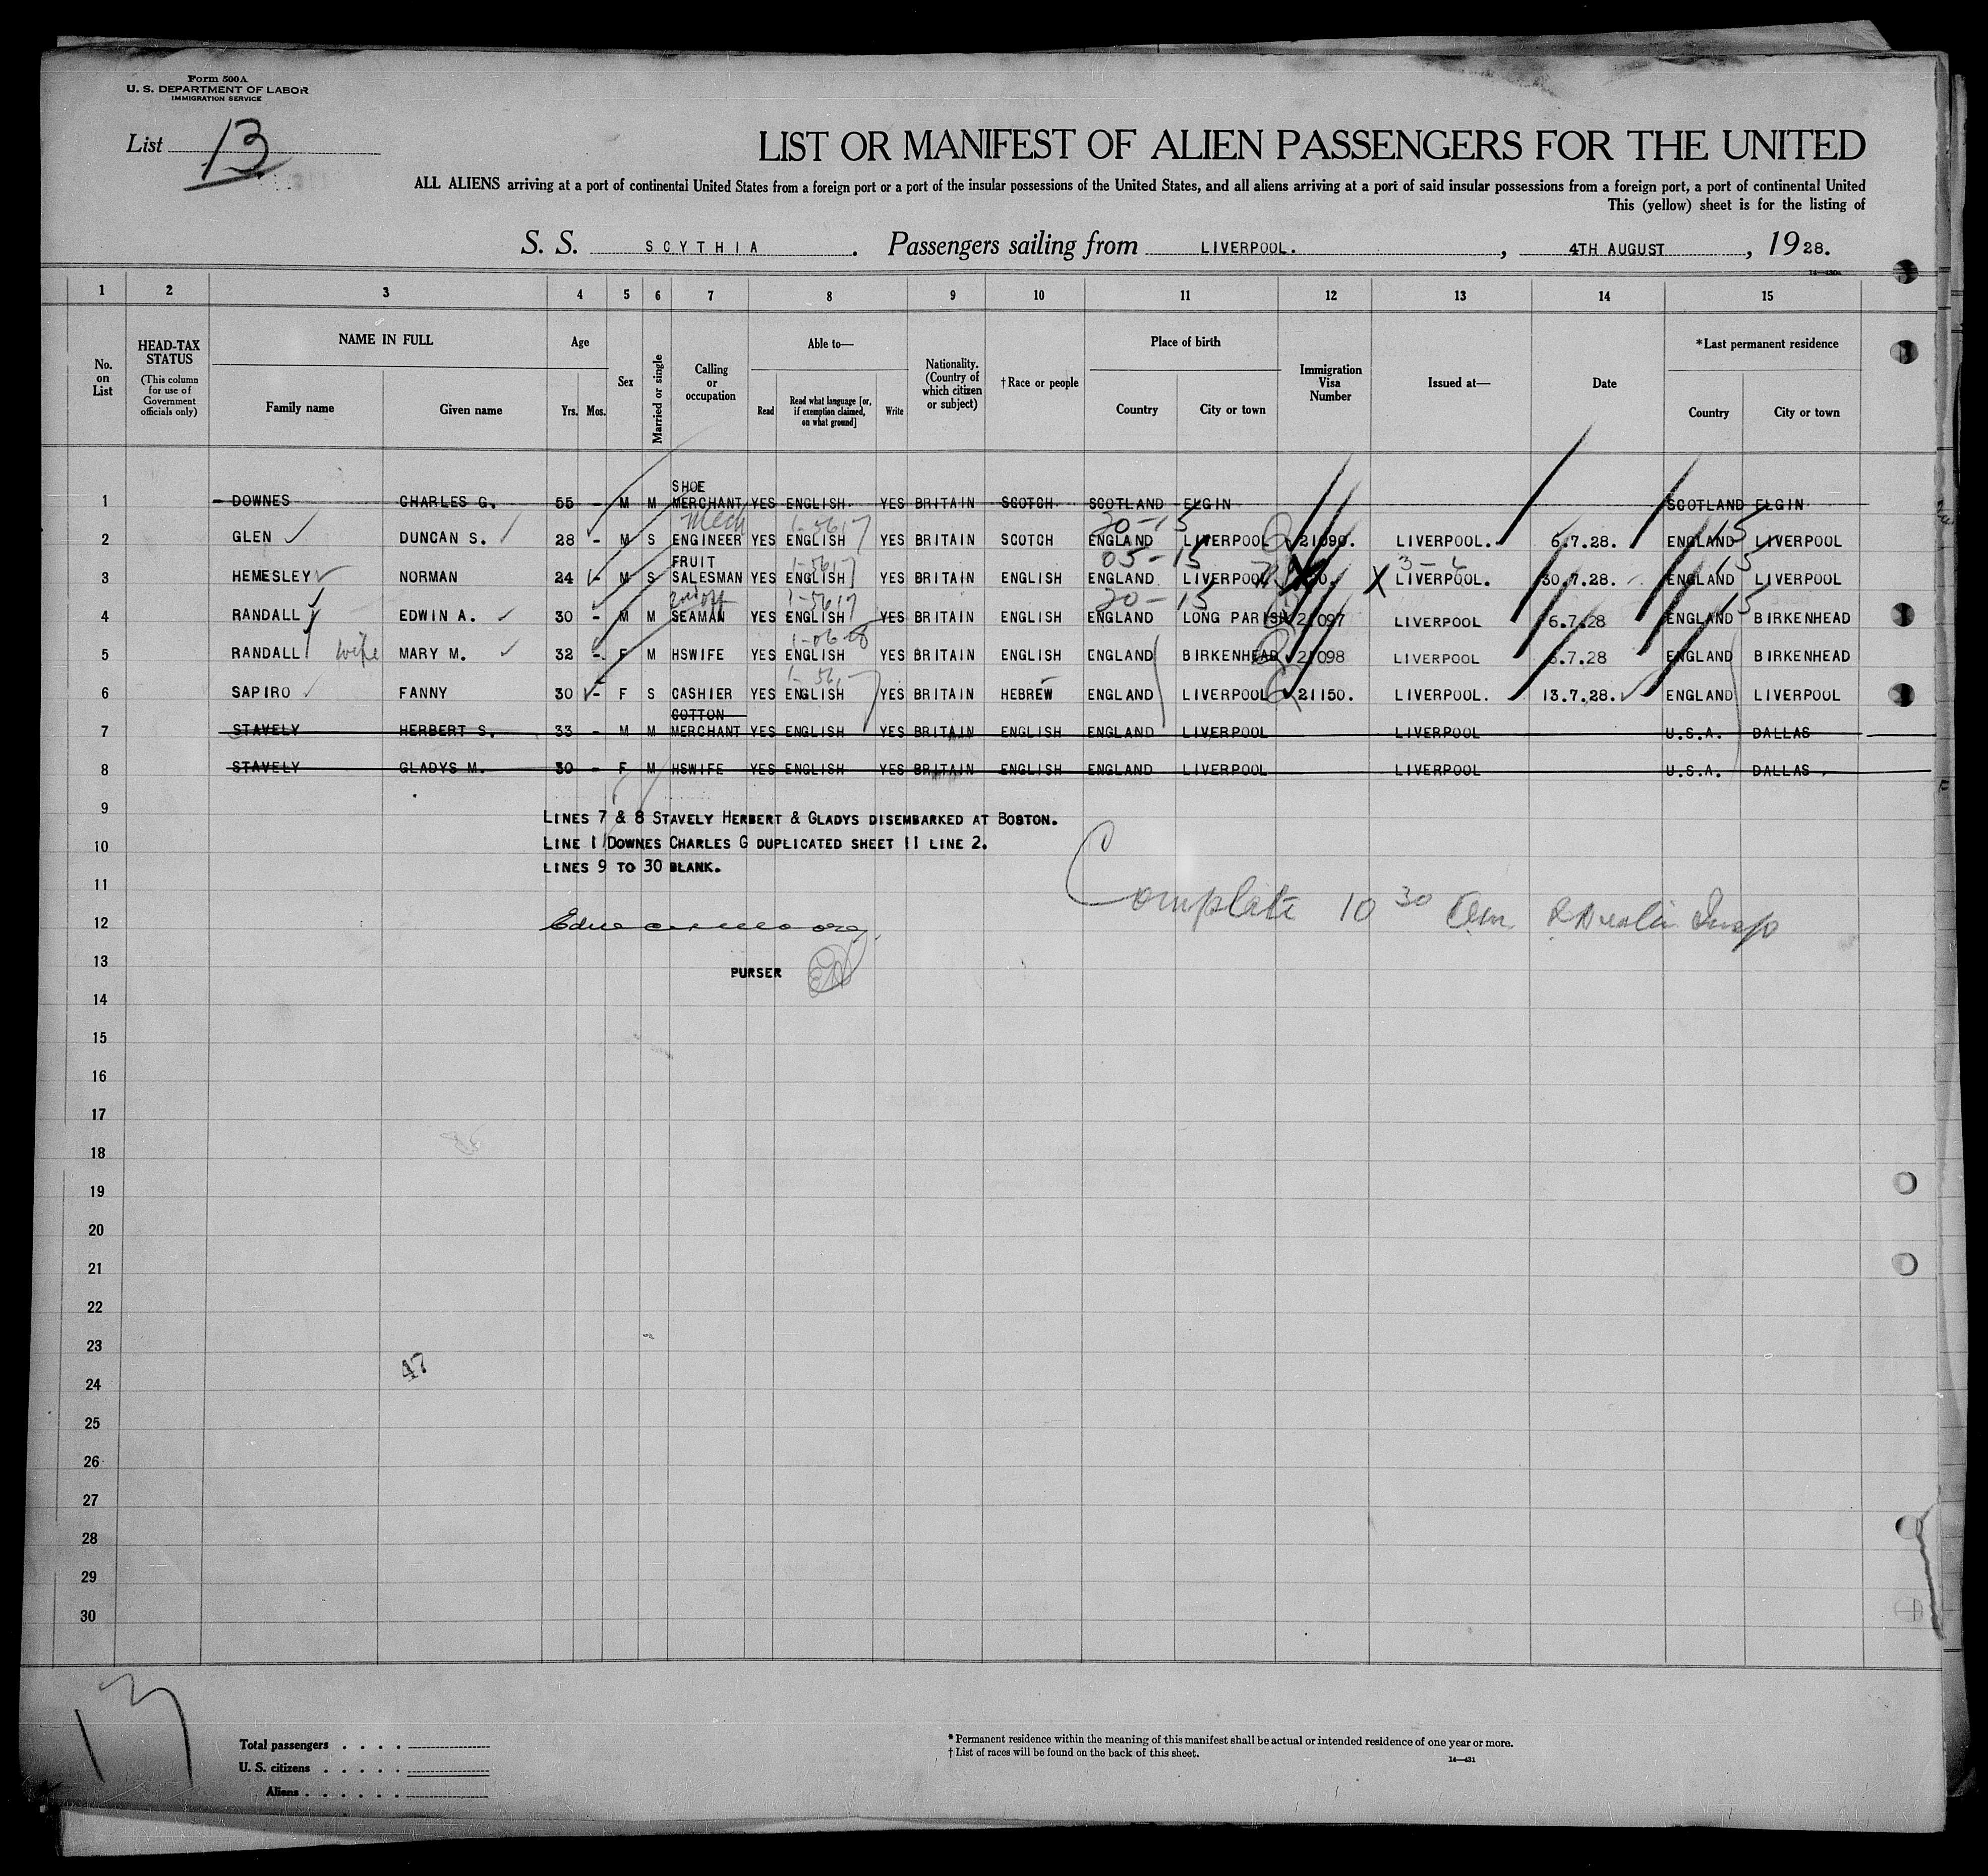 Form 500A
U. S. DEPARTMENT OF LABOR
IMMIGRATION SERVICE
List 13
LIST OR MANIFEST OF ALIEN PASSENGERS FOR THE UNITED
ALL ALIENS arriving at a port of continental United States from a foreign port or a port of the insular possessions of the United States, and all aliens arriving at a port of said insular possessions from a foreign port, a port of continental United
This (yellow) sheet is for the listing of
S. S. SCYTHIA. Passengers sailing from LIVERPOOL. , 4TH AUGUST , 1928.
1 2 3 4 5 6 7 8 9 10 11 12 13 14 15
No. on List
HEAD-TAX STATUS (This column for use of Government officials only)
NAME IN FULL
Family name Given name
Age
Yrs. Mos.
Sex
Married or single
Calling or occupation
Able to—
Read Read what language [or, if exemption claimed, on what ground] Write
Nationality. (Country of which citizen or subject)
†Race or people
Place of birth
Country City or town
Immigration Visa Number
Issued at—
Date
*Last permanent residence
Country City or town
1 DOWNES CHARLES G. 55 - M M SHOE MERCHANT YES ENGLISH YES BRITAIN SCOTCH SCOTLAND ELGIN SCOTLAND ELGIN
Mech 1-5617 20-15
2 GLEN DUNCAN S. 28 - M S ENGINEER YES ENGLISH YES BRITAIN SCOTCH ENGLAND LIVERPOOL 21090. LIVERPOOL. 6.7.28. ENGLAND 15 LIVERPOOL
1-5617 05-15
3 HEMESLEY NORMAN 24 - M S FRUIT SALESMAN YES ENGLISH YES BRITAIN ENGLISH ENGLAND LIVERPOOL X LIVERPOOL. 30.7.28. ENGLAND 15 LIVERPOOL
1-5617 20-15
4 RANDALL EDWIN A. 30 - M M SEAMAN YES ENGLISH YES BRITAIN ENGLISH ENGLAND LONG PARISH 21097 LIVERPOOL 6.7.28 ENGLAND 15 BIRKENHEAD
5 RANDALL wife MARY M. 32 - F M HSWIFE YES ENGLISH YES BRITAIN ENGLISH ENGLAND BIRKENHEAD 21098 LIVERPOOL 6.7.28 ENGLAND BIRKENHEAD
6 SAPIRO FANNY 30 - F S CASHIER YES ENGLISH YES BRITAIN HEBREW ENGLAND LIVERPOOL 21150. LIVERPOOL. 13.7.28. ENGLAND LIVERPOOL
7 STAVELY HERBERT S. 33 - M M COTTON MERCHANT YES ENGLISH YES BRITAIN ENGLISH ENGLAND LIVERPOOL LIVERPOOL U.S.A. DALLAS
8 STAVELY GLADYS M. 30 - F M HSWIFE YES ENGLISH YES BRITAIN ENGLISH ENGLAND LIVERPOOL LIVERPOOL U.S.A. DALLAS.
9
LINES 7 & 8 STAVELY HERBERT & GLADYS DISEMBARKED AT BOSTON.
10
LINE 1 DOWNES CHARLES G DUPLICATED SHEET 11 LINE 2.
LINES 9 TO 30 BLANK.
11
Complete 10 30
12
13
PURSER
14
15
16
17
18
19
20
21
22
23
47
24
25
26
27
28
29
30
13
Total passengers
U. S. citizens
Aliens
* Permanent residence within the meaning of this manifest shall be actual or intended residence of one year or more.
† List of races will be found on the back of this sheet.
14—431